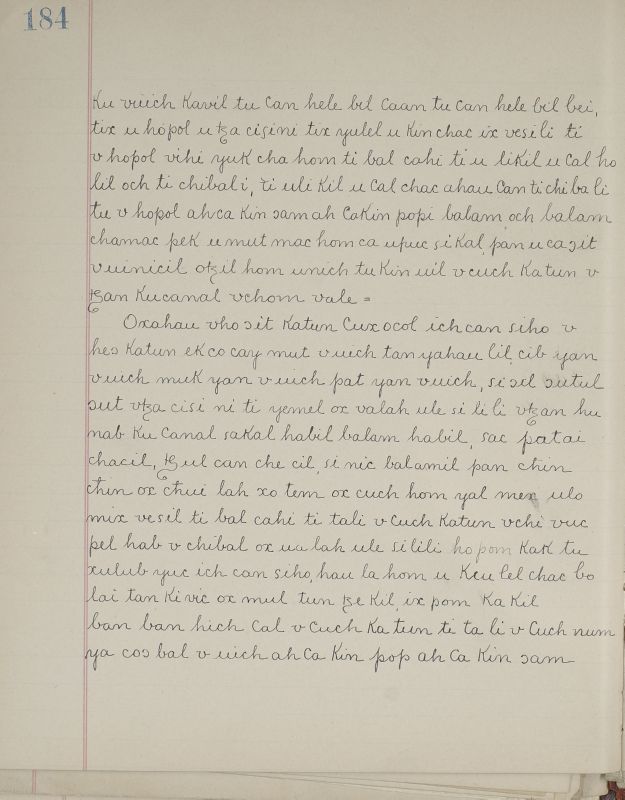 184
Ku vuich Kavil tu Can hele bil Caan tu can hele bil bei,
tix u hopol u ꜩa cisini tix yulel u Kin chac ix vesili ti
v hopol vihi yuk cha hom ti bal cahi ti u likil u Cal ho
lil och ti chibali, ti uli Kil u Cal chac ahau Can ti chiba li
tu v hopol ah ca Kin ɔam ah CaKin popi balam, och balam
chamac pek u mut mac hom ca upuc sikal, pan u ca ɔit
vuinicil otzil hom unich tu Kin uil v cuch Katun v
ꜩan Kucanal vchom vale =
Oxahau vho ɔit Katun Cux ocol ich can siho v
heɔ Katun ek co cay mut vuich tan yahau lil, cib yan
vuich muk yan vuich pat yan vuich, si ɔil sutul
sut vꜩa cisi ni ti yemel ox valah ule si li li vꜩan hu
nab Ku Canal sakal habil balam habil, sac patai
chacil, ꜩul can che cil, si nic balamil pan chin
chin ox chui lah xo tem ox cuch hom yal mex ulo
mix vesil ti bal cahi ti tali v Cuch Katun v chi vuc
pel hab v chibal ox ua lah ule silili ho pom KaK tu
xulub yuc ich can siho, hau la hom u Keu lel chac bo
lai tan Ki vic ox mul tun ꜩe Kil, ix pom Ka Kil
ban ban hich Cal v Cuch Ka tun ti ta li v Cuch num
ya coɔ bal v uich ah Ca Kin pop ah Ca Kin ɔam